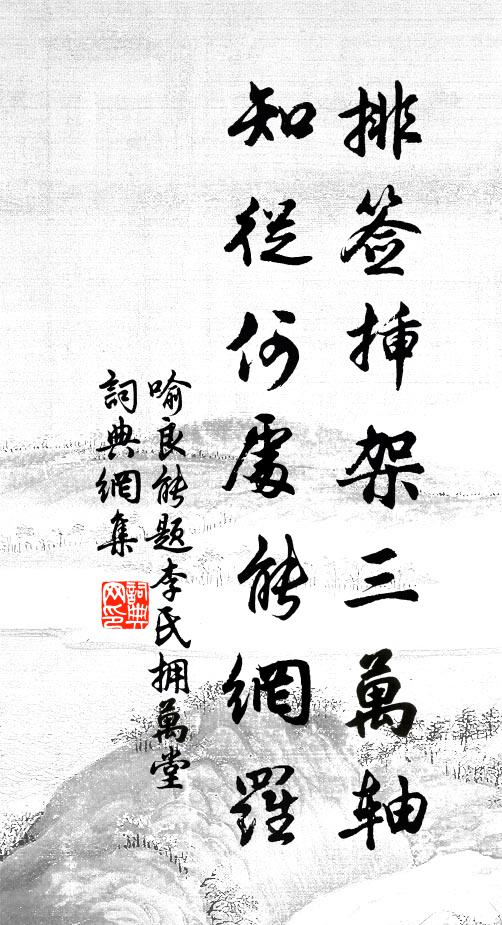 排签揷架三萬軸
知從何處能網羅
喻良能題李氏拥萬堂
詞典網集
詞典網印